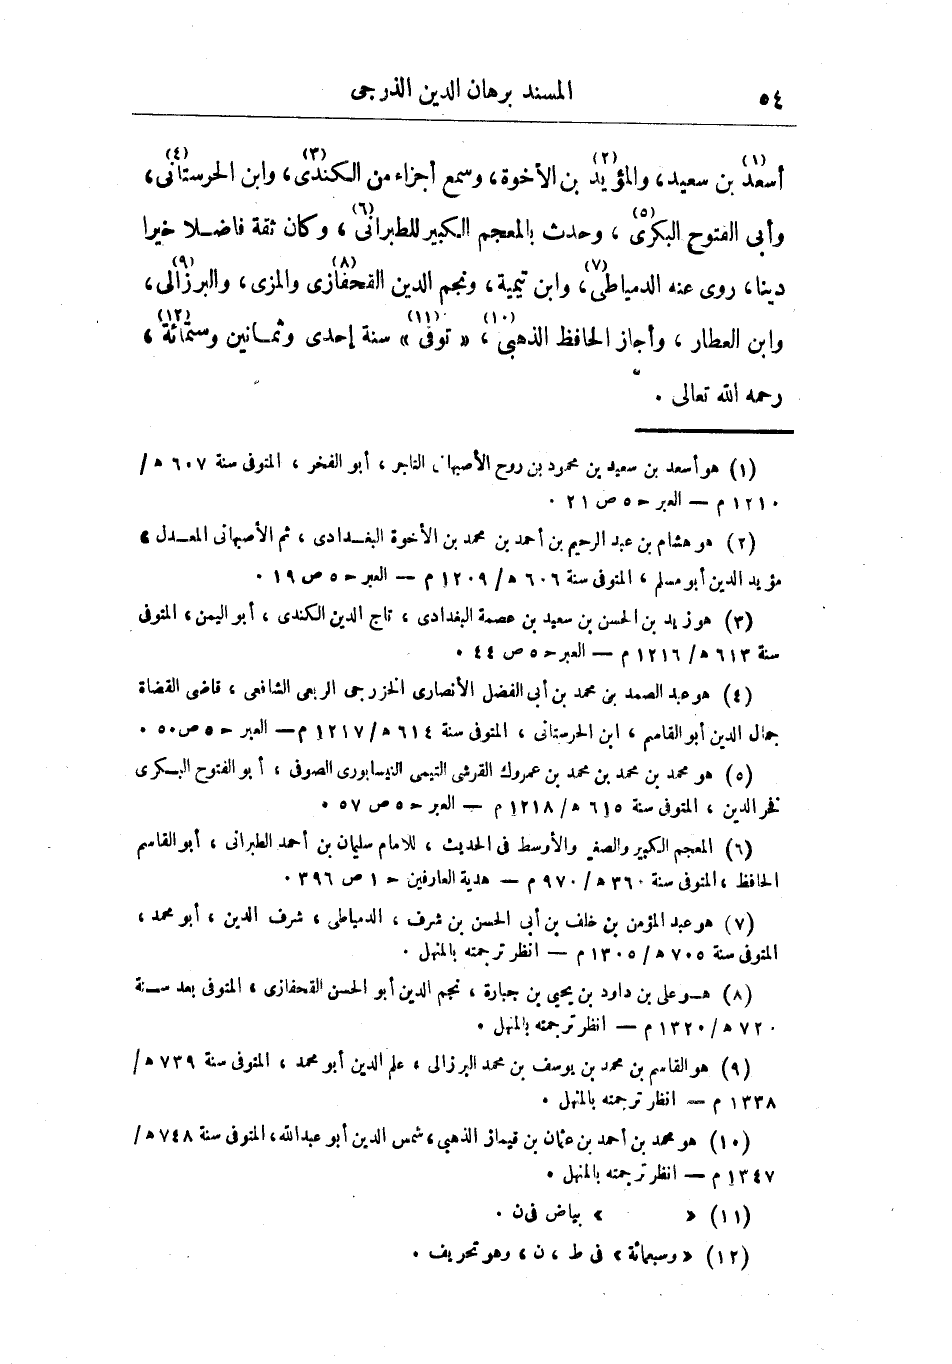 ٥٤
المسند برهان الدين الذرجى
أسعد (١) بن سعيد، والمؤيد (٢) بن الأخوة، وسمع أجزاء من الكندى (٣)، وابن الحرستانى (٤)،
وأبى الفتوح البكرى (٥)، وحدث بالمعجم الكبير للطبرانى (٦)، وكان ثقة فاضلا خيرا
دينا، روى عنه الدمياطى (٧)، وابن تيمية، ونجم الدين القحفازى (٨) والمزى، والبرزالى (٩)،
وابن العطار، وأجاز الحافظ الذهبى (١٠)، « توفى » (١١) سنة إحدى وثمانين وستمائة (١٢)،
رحمه الله تعالى .
(١) هو أسعد بن سعيد بن محمود بن روح الأصبهانى التاجر، أبو الفخر، المتوفى سنة ٦٠٧ ه/
١٢١٠ م — العبر ح ٥ ص ٢١ .
(٢) هو هشام بن عبد الرحيم بن أحمد بن محمد بن الأخوة البغدادى، ثم الأصبهانى المعدل،
مؤيد الدين أبو مسلم، المتوفى سنة ٦٠٦ ه/ ١٢٠٩ م — العبر ح ٥ ص ١٩ .
(٣) هو زيد بن الحسن بن سعيد بن عصمة البغدادى، تاج الدين الكندى، أبو اليمن، المتوفى
سنة ٦١٣ ه/ ١٢١٦ م — العبر ح ٥ ص ٤٤ .
(٤) هو عبد الصمد بن محمد بن أبى الفضل الأنصارى الخزرجى الربعى الشافعى، قاضى القضاة
جمال الدين أبو القاسم، ابن الحرستانى، المتوفى سنة ٦١٤ ه/ ١٢١٧ م — العبر ح ٥ ص ٥٠ .
(٥) هو محمد بن محمد بن محمد بن عمروك القرشى التيمى النيسابورى الصوفى، أبو الفتوح البكرى
فخر الدين، المتوفى سنة ٦١٥ ه/ ١٢١٨ م — العبر ح ٥ ص ٥٧ .
(٦) المعجم الكبير والصغير والأوسط فى الحديث، للامام سليمان بن أحمد الطبرانى، أبو القاسم
الحافظ، المتوفى سنة ٣٦٠ ه/ ٩٧٠ م — هدية العارفين ح ١ ص ٣٩٦ .
(٧) هو عبد المؤمن بن خلف بن أبى الحسن بن شرف، الدمياطى، شرف الدين، أبو محمد،
المتوفى سنة ٧٠٥ ه/ ١٣٠٥ م — انظر ترجمته بالمنهل .
(٨) هو على بن داود بن يحيى بن جبارة، نجم الدين أبو الحسن القحفازى، المتوفى بعد سنة
٧٢٠ ه/ ١٣٢٠ م — انظر ترجمته بالمنهل .
(٩) هو القاسم بن محمد بن يوسف بن محمد البرزالى، علم الدين أبو محمد، المتوفى سنة ٧٣٩ ه/
١٣٣٨ م — انظر ترجمته بالمنهل .
(١٠) هو محمد بن أحمد بن عثمان بن قيماز الذهبى، شمس الدين أبو عبدالله، المتوفى سنة ٧٤٨ ه/
١٣٤٧ م — انظر ترجمته بالمنهل .
(١١) « » بياض فى ن .
(١٢) « وسبعمائة » فى ط، ن، وهو تحريف .